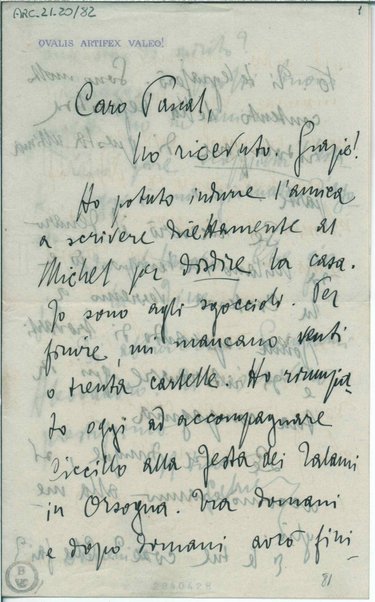 ARC.21.20/82
1
OVALIS ARTIFEX VALEO!
Caro Pascal,
Ho ricevuto. Grazie!
Ho potuto indurre l'amica
a scrivere direttamente al
Michel per disdire la casa.
Io sono agli sgoccioli. Per
finire mi mancano venti
o trenta cartelle. Ho rinunzia-
to oggi ad accompagnare
Ciccillo alla festa dei Talami
in Orsogna. Tra domani
e dopo domani avrò fini-
81